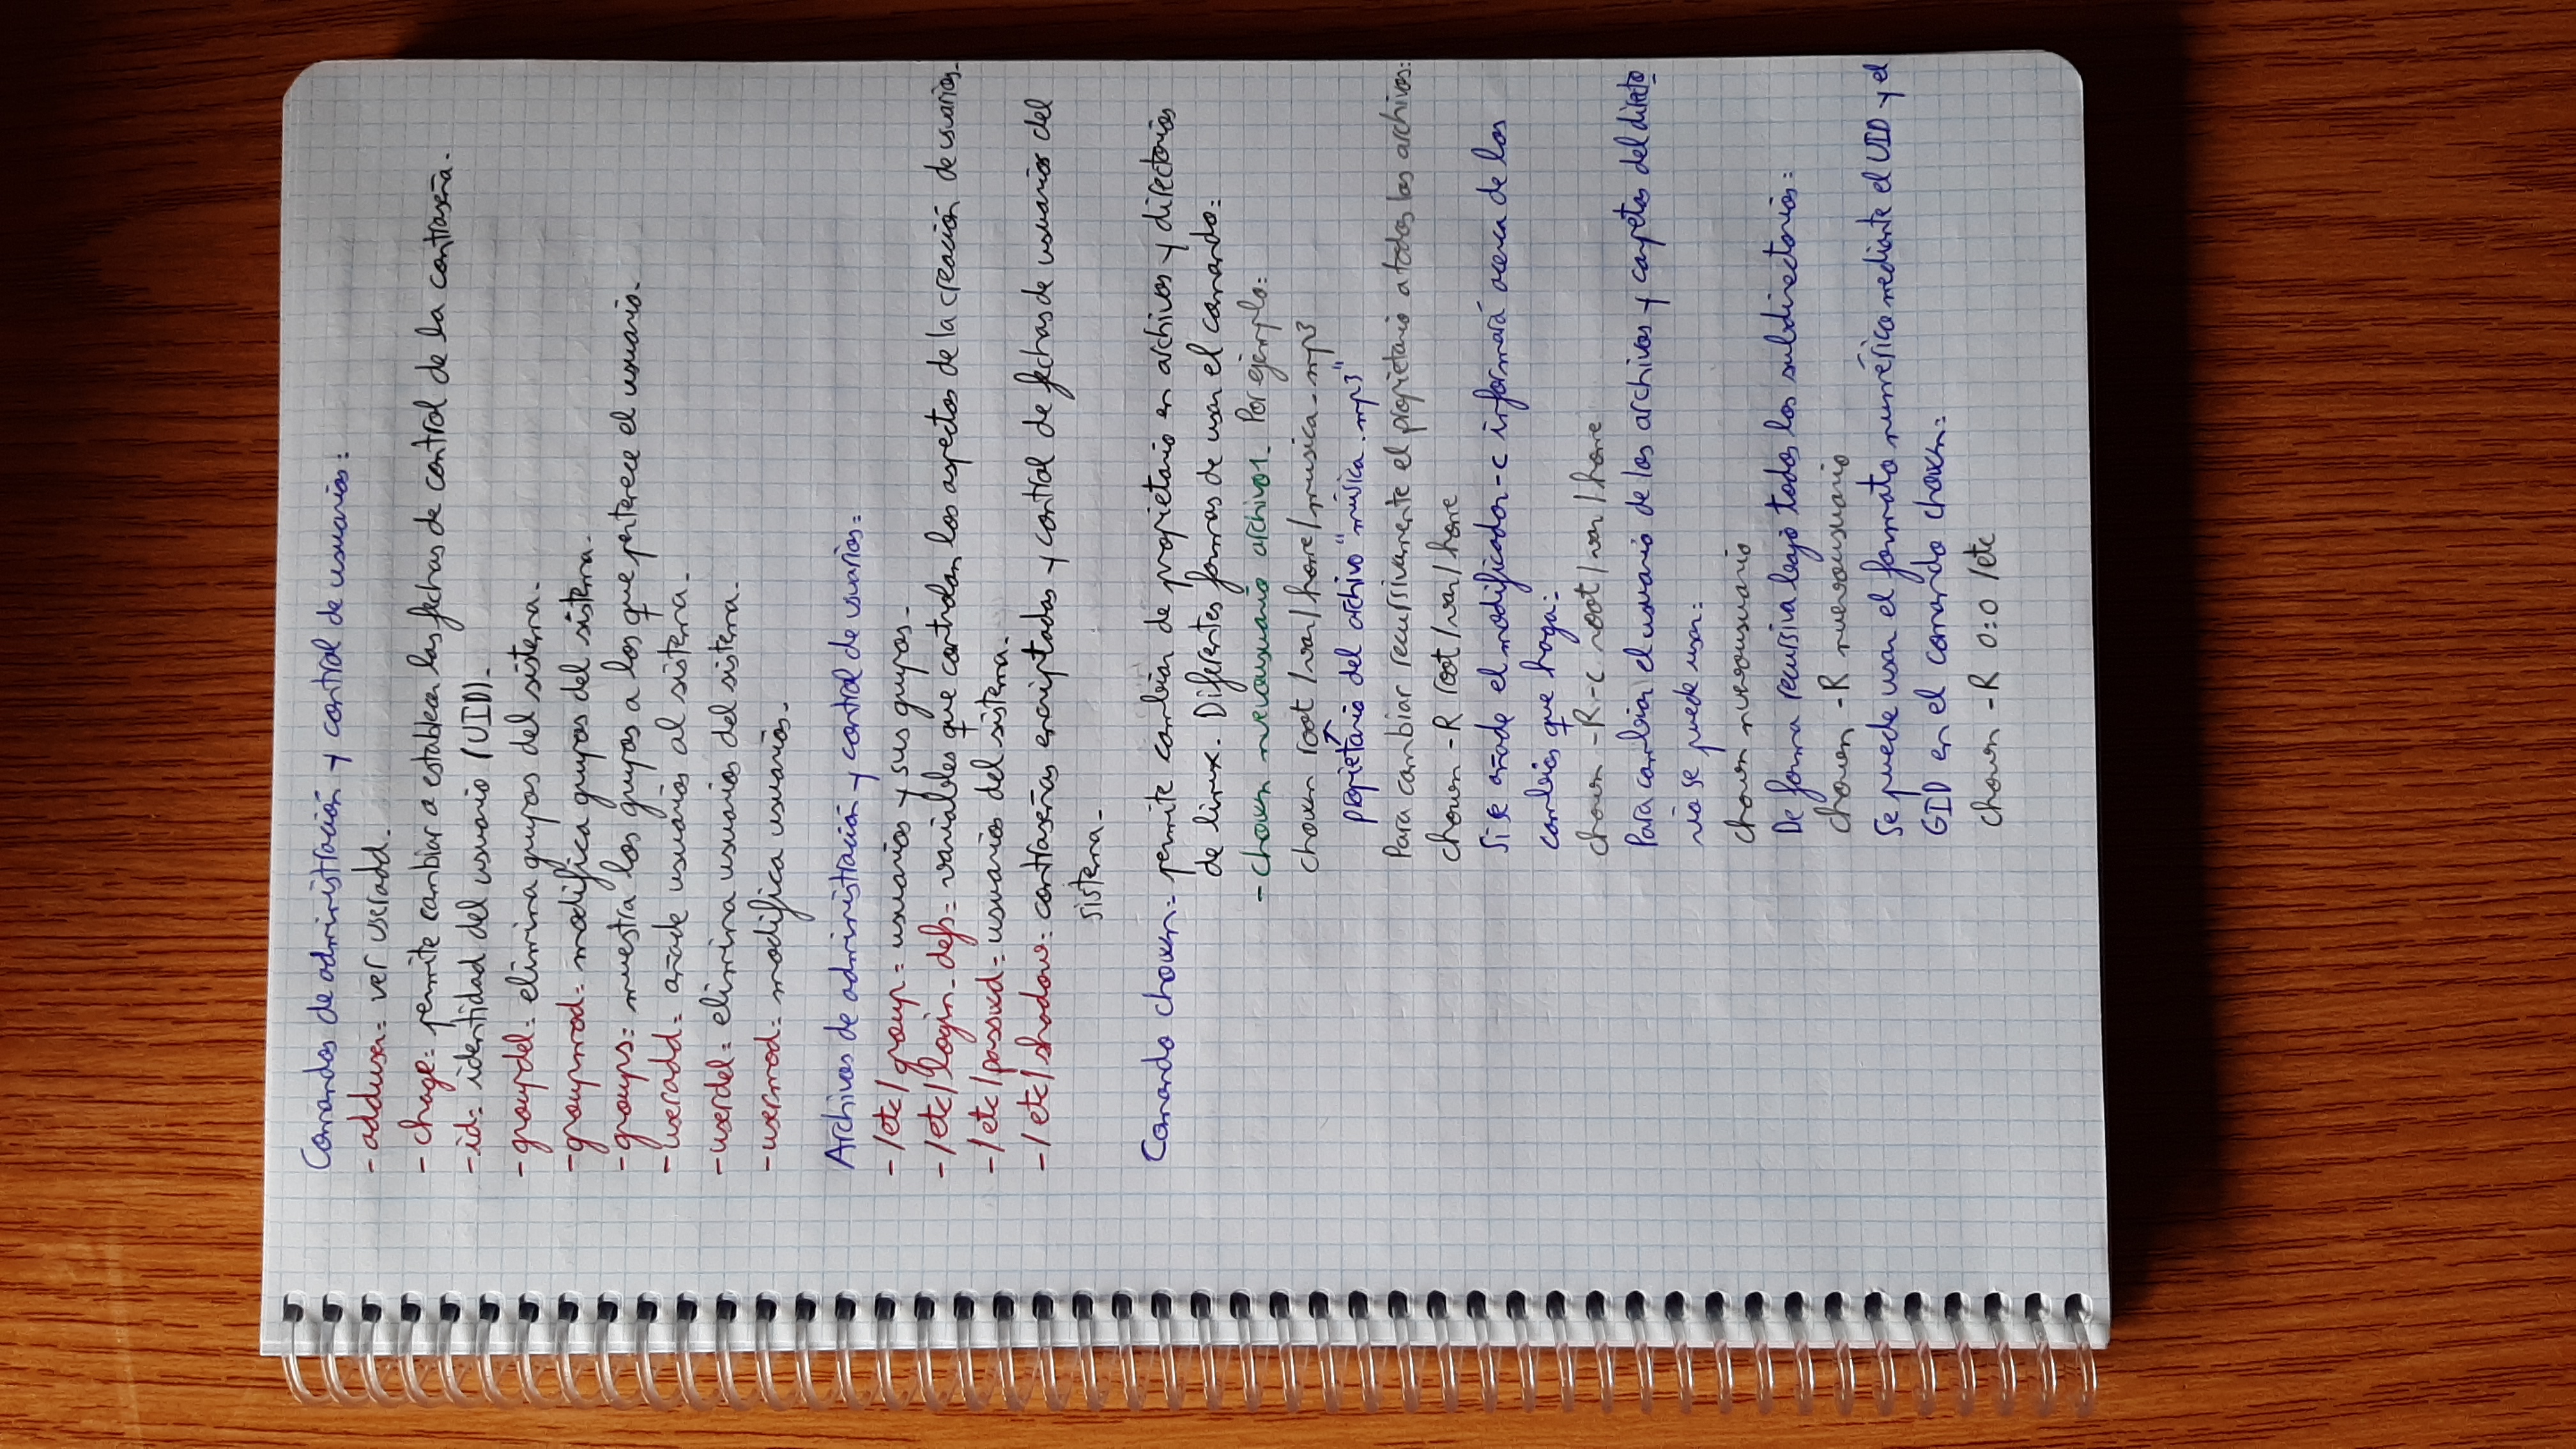 Comandos de administración y control de usuarios:
- adduser: ver useradd.
- chage: permite cambiar o establecer las fechas de control de la contraseña.
- id: identidad del usuario (UID).
- groupdel: elimina grupos del sistema.
- groupmod: modifica grupos del sistema.
- groups: muestra los grupos a los que pertenece el usuario.
- useradd: añade usuarios al sistema.
- userdel: elimina usuarios del sistema.
- usermod: modifica usuarios.
Archivos de administración y control de usuarios:
- /etc/group: usuarios y sus grupos.
- /etc/login.defs: variables que controlan los aspectos de la creación de usuarios.
- /etc/passwd: usuarios del sistema.
- /etc/shadow: contraseñas encriptadas y control de fechas de usuarios del
sistema.
Comando chown: permite cambiar de propietario en archivos y directorios
de linux. Diferentes formas de usar el comando:
- chown nuevousuario archivo1. Por ejemplo:
chown root /var/home/musica.mp3
propietario del archivo "música.mp3"
Para cambiar recursivamente el propietario a todos los archivos:
chown -R root /var/home
Si se añade el modificador -c informará acerca de los
cambios que haga:
chown -R -c root /var/home
Para cambiar el usuario de los archivos y carpetas del directo
rio se puede usar:
chown nuevousuario
De forma recursiva bajo todos los subdirectorios:
chown -R nuevousuario
Se puede usar el formato numérico mediante el UID y el
GID en el comando chown:
chown -R 0:0 /etc